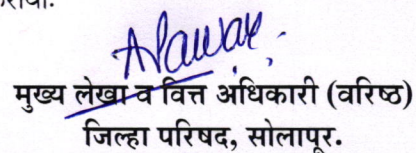 Alawar
मुख्य लेखा व वित्त अधिकारी (वरिष्ठ)
जिल्हा परिषद, सोलापूर.